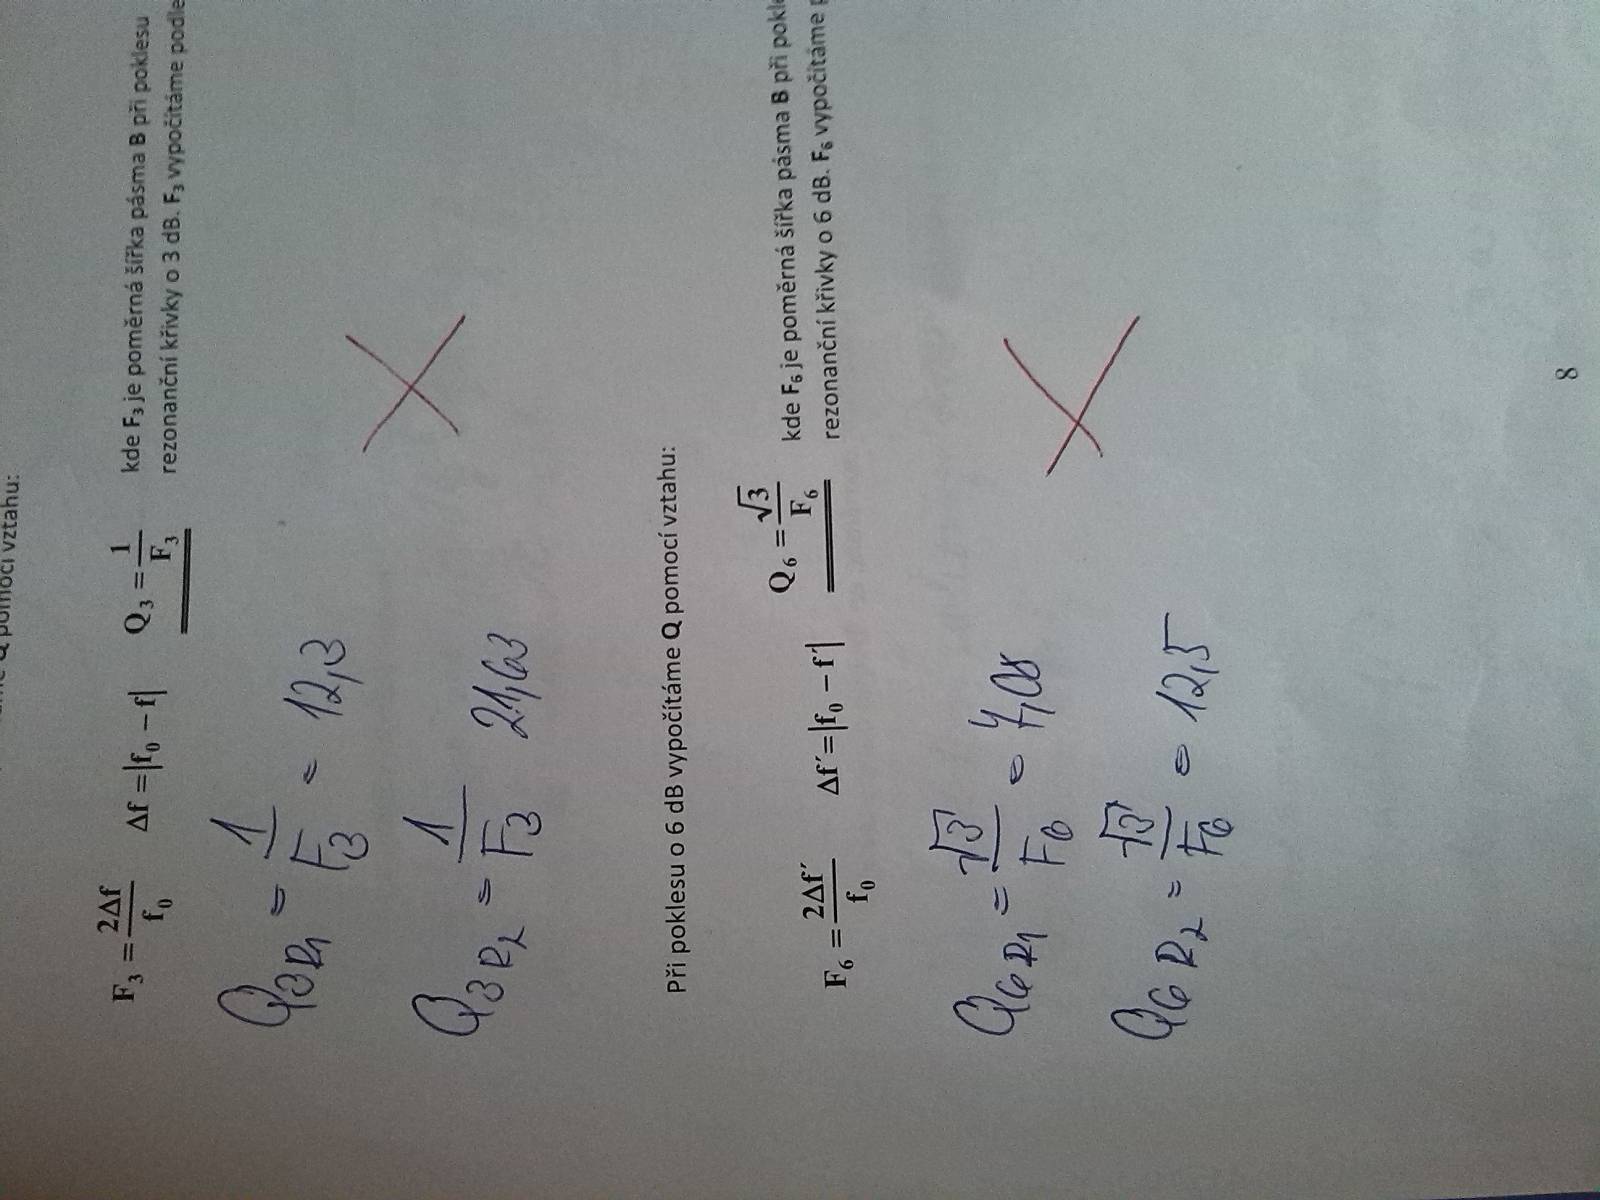 pomocí vztahu:
F₃ = 2Δf / f₀   Δf = |f₀ − f|   Q₃ = 1 / F₃   kde F₃ je poměrná šířka pásma B při poklesu
rezonanční křivky o 3 dB. F₃ vypočítáme podle
Q₃R₁ = 1 / F₃ = 12,3
Q₃R₂ = 1 / F₃ = 21,63
Při poklesu o 6 dB vypočítáme Q pomocí vztahu:
F₆ = 2Δf´ / f₀   Δf´ = |f₀ − f´|   Q₆ = √3 / F₆   kde F₆ je poměrná šířka pásma B při
rezonanční křivky o 6 dB. F₆ vypočítáme
Q₆R₁ = √3 / F₆ = 7,08
Q₆R₂ = √3 / F₆ = 12,5
8